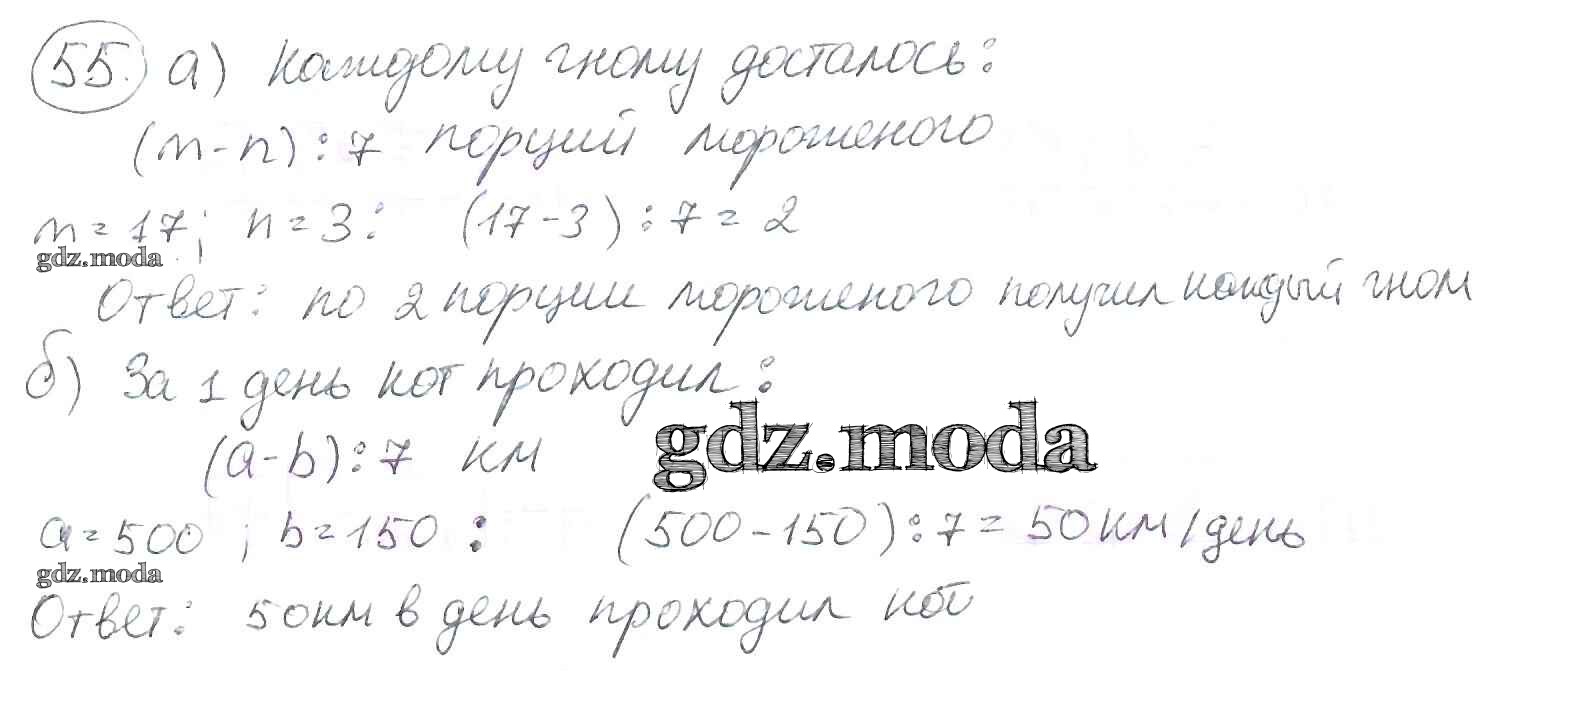 55. а) Каждому гному досталось:
(m-n):7 порций мороженого
m=17; n=3: (17-3):7=2
gdz.moda
Ответ: по 2 порции мороженого получил каждый гном
б) За 1 день кот проходил:
(a-b):7 км
gdz.moda
a=500; b=150: (500-150):7=50 км/день
gdz.moda
Ответ: 50 км в день проходил кот